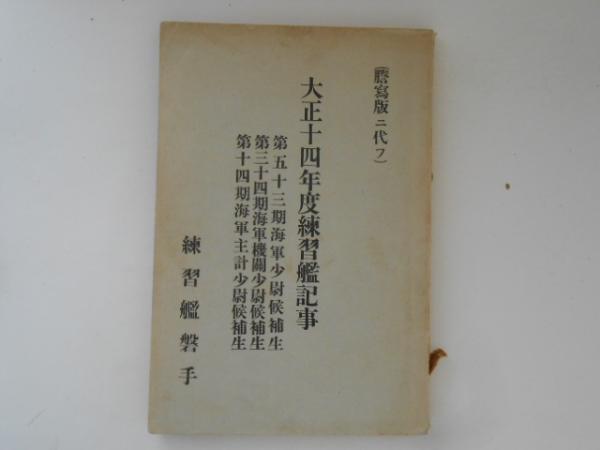 (謄寫版ニ代フ)
大正十四年度練習艦記事
第五十三期海軍少尉候補生
第三十四期海軍機關少尉候補生
第十四期海軍主計少尉候補生
練習艦磐手